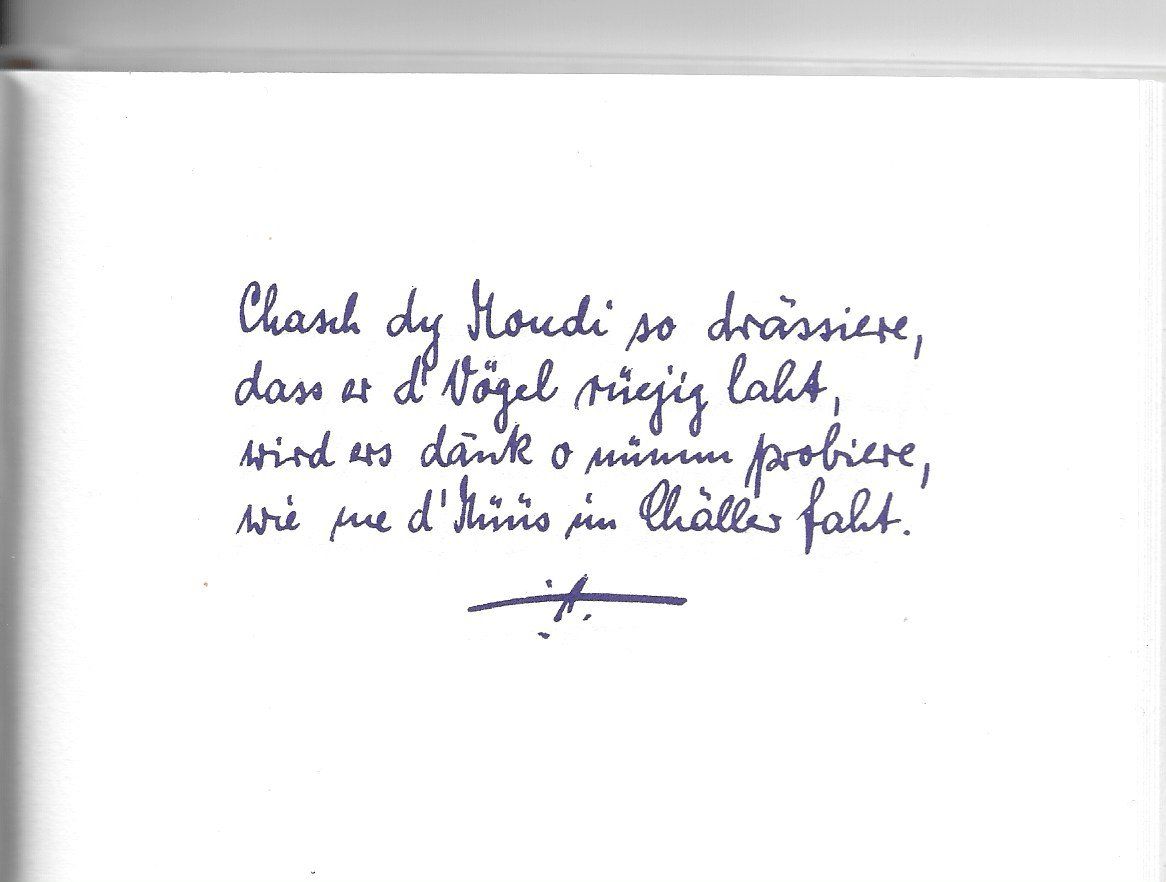 Chasch dy Moudi so drässiere,
dass er d'Vögel rüejig laht,
wird ers dänk o nümm probiere,
wie me d'Müüs im Chäller faht.